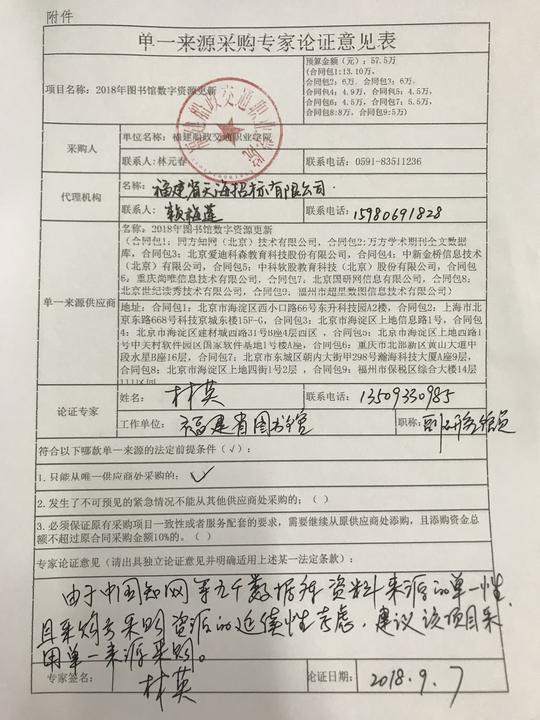 附件
单一来源采购专家论证意见表
项目名称：2018年图书馆数字资源更新
预算金额（元）：57.5万
（合同包1:13.10万，
合同包2：6万，合同包3：6万，
合同包4：4.9万，合同包5：4.5万，
合同包6：4.5万，合同包7：5.5万，
合同包8:8万，合同包9:5万）
福建船政交通职业学院
采购人
单位名称：福建船政交通职业学院
联系人：林元春
联系电话：0591-83511236
代理机构
名称：福建省天海招标有限公司.
联系人：赖梅莲
联系电话：15980691828
单一来源供应商
名称：2018年图书馆数字资源更新
（合同包1：同方知网（北京）技术有限公司，合同包2:万方学术期刊全文数据
库，合同包3：北京爱迪科森教育科技股份有限公司，合同包4：中新金桥信息技术
（北京）有限公司，合同包5：中科软股教育科技（北京）股份有限公司，合同包
6：重庆尚唯信息技术有限公司，合同包7：北京国研网信息有限公司，合同包8：
北京世纪读秀技术有限公司，合同包9：福州市超星数图信息技术有限公司）
地址：合同包1：北京市海淀区西小口路66号东升科技园A2楼，合同包2：上海市北
京东路668号科技京城东楼15F-G，合同包3：北京市海淀区上地信息路1号，合同包
4：北京市海淀区建材城西路31号B座4层西区，合同包5：北京市海淀区上地西路
1号中关村软件园区国家软件基地1号楼A座，合同包6：重庆市北部新区黄山大道中
段水星B座16层，合同包7：北京市东城区朝内大街甲298号瀚海科技大厦A座9层，
合同包8：北京市海淀区上地四街1号2层 ，合同包9：福州市保税区综合大楼14层
论证专家
姓名：林英
联系电话：13509330985
工作单位：福建省图书馆
职称：副研究馆员
符合以下哪款单一来源的法定前提条件（√）：
1.只能从唯一供应商处采购的：√
2.发生了不可预见的紧急情况不能从其他供应商处采购的；（ ）
3.必须保证原有采购项目一致性或者服务配套的要求，需要继续从原供应商处添购，且添购资金总
额不超过原合同采购金额10%的。（ ）
专家论证意见（请出具独立论证意见并明确适用上述某一法定条款）：
由于中国知网等九个数据库资料来源的单一性，
且采购方采购资源的延续性考虑，建议该项目采
用单一来源采购。
专家签名：林英
论证日期：2018.9.7